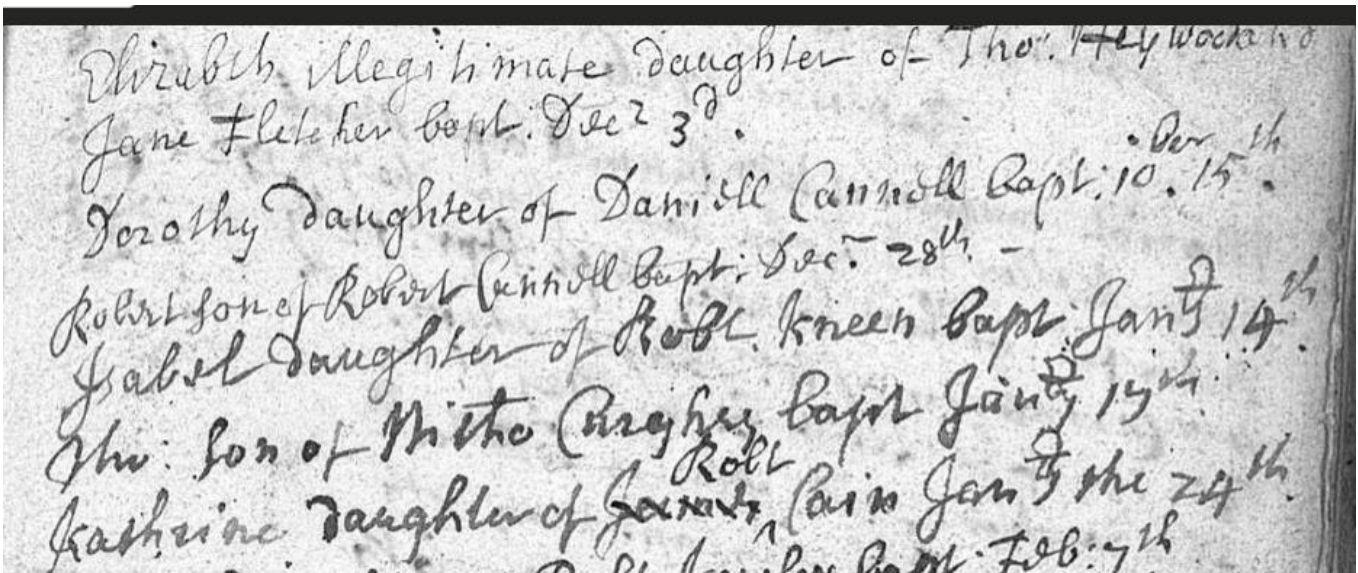 Elizabeth illegitimate daughter of Tho: Heywood and
Jane Fletcher bapt. Decr 3d.
Dorothy daughter of Daniell Cannell bapt: 10ber 15th.
Robert son of Robert Cannell bapt: Decr 28th. -
Isabel daughter of Robt. Kneen bapt Janry 14th.
Tho: son of bapt Janry
Kathrine daughter of Robt Cain Janry the 24th.
Robt bapt. Feb: 7th